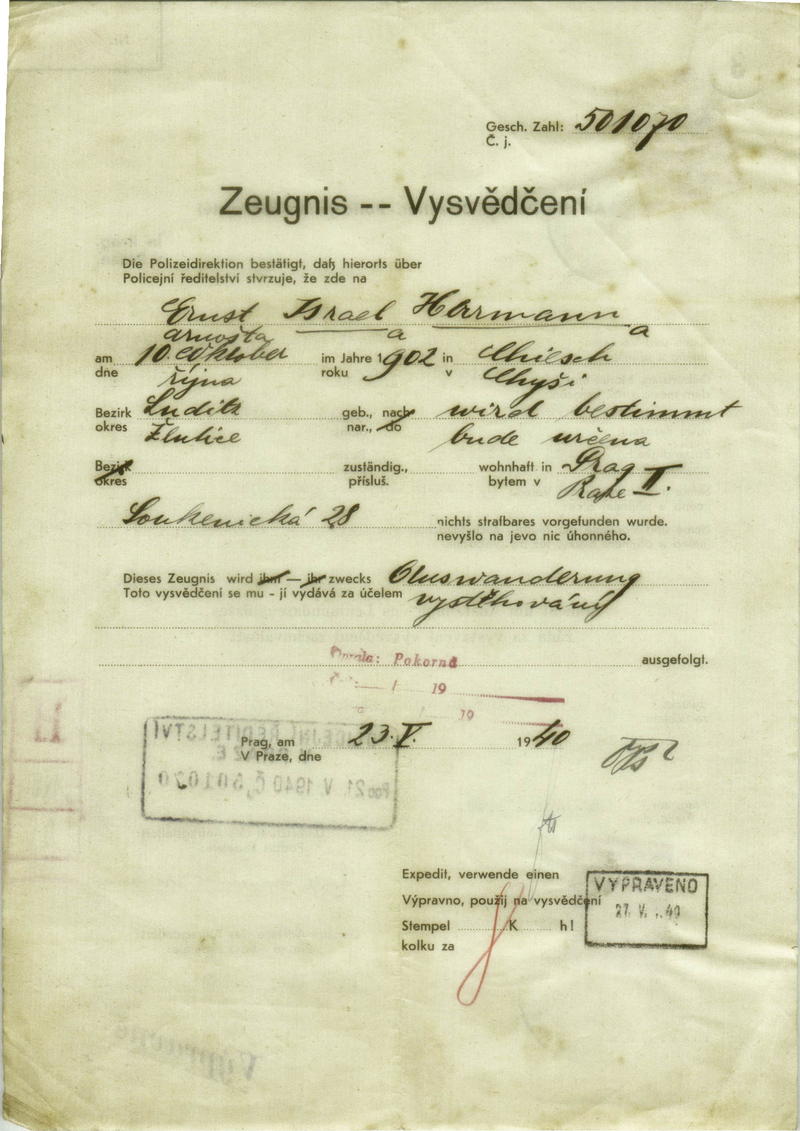 Gesch. Zahl: 501070
Č. j.
Zeugnis -- Vysvědčení
Die Polizeidirektion bestätigt, daß hierorts über
Policejní ředitelství stvrzuje, že zde na
Ernst Israel Hermann
Arnošta a a
am 10. Oktober im Jahre 1902 in Chiesch
dne října roku v Chyši
Bezirk Luditz geb., nach wird bestimmt
okres Žlutice nar., do bude určena
Bezirk zuständig., wohnhaft in Prag II.
okres přísluš. bytem v Praze
Soukenická 28 nichts strafbares vorgefunden wurde.
nevyšlo na jevo nic úhonného.
Dieses Zeugnis wird ihm — ihr zwecks Auswanderung
Toto vysvědčení se mu - jí vydává za účelem vystěhování
Pokorná ausgefolgt.
19
19
Prag, am 23. V. 1940
V Praze, dne
POLICEJNÍ ŘEDITELSTVÍ
21 V 1940 Č. 501070
Expedit, verwende einen
Výpravno, použij na vysvědčení
Stempel K h!
kolku za
VYPRAVENO
27. V. 40
Výpravně